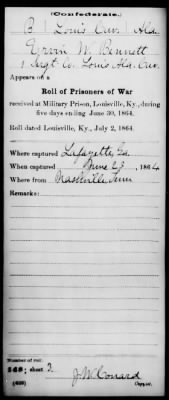 (Confederate.)
B Louis Cav. Ala.
Ervin W. Bennett
1 Sergt. Co. Louis Ala. Cav.
Appears on a
Roll of Prisoners of War
received at Military Prison, Louisville, Ky., during
five days ending June 30, 1864.
Roll dated Louisville, Ky., July 2, 1864.
Where captured Lafayette, Ga.
When captured June 23, 1864
Where from Nashville Tenn
Remarks:
Number of roll:
sheet 2
J. W. Conard
Copyist.